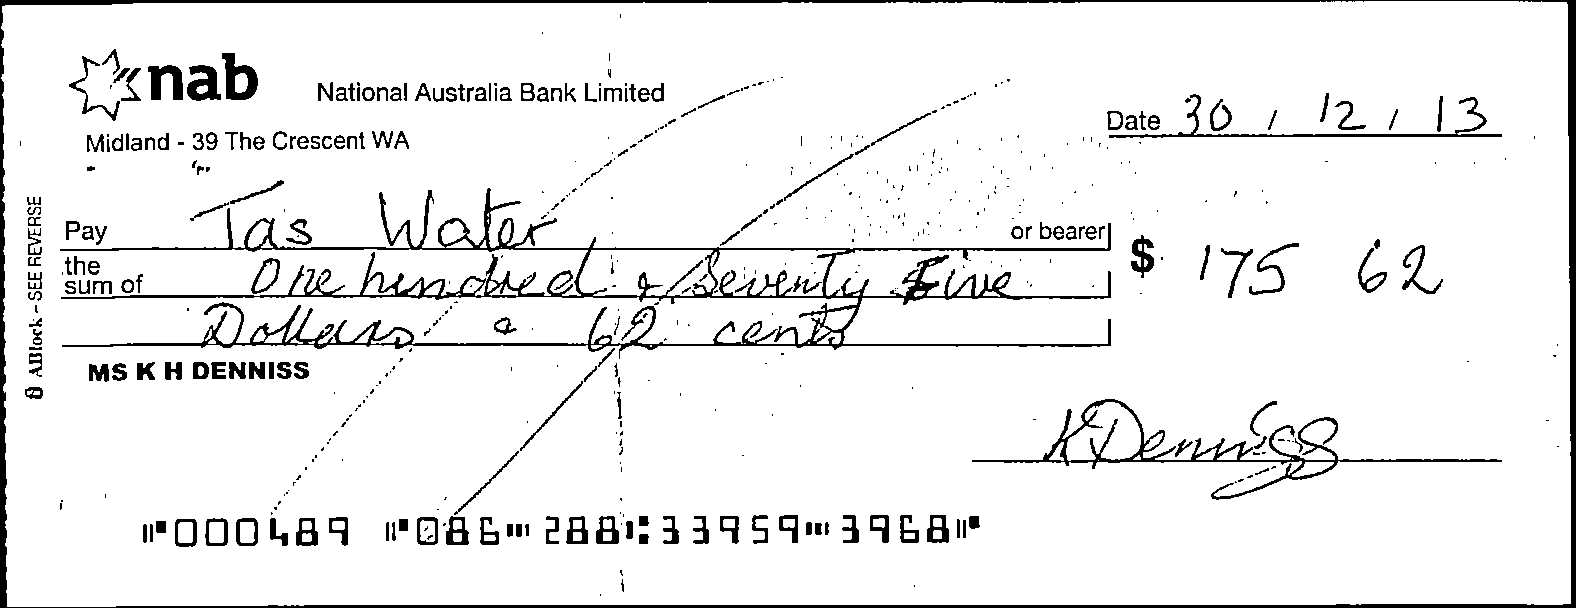 nab
National Australia Bank Limited
Midland - 39 The Crescent WA
Date 30 / 12 / 13
Pay Tas Water or bearer
the sum of One hundred & Seventy Five
$ 175 62
Dollars & 62 cents
MS K H DENNISS
KDenniss
ABlock - SEE REVERSE
⑈000489 ⑈086⑉288⑆33959⑉3968⑈